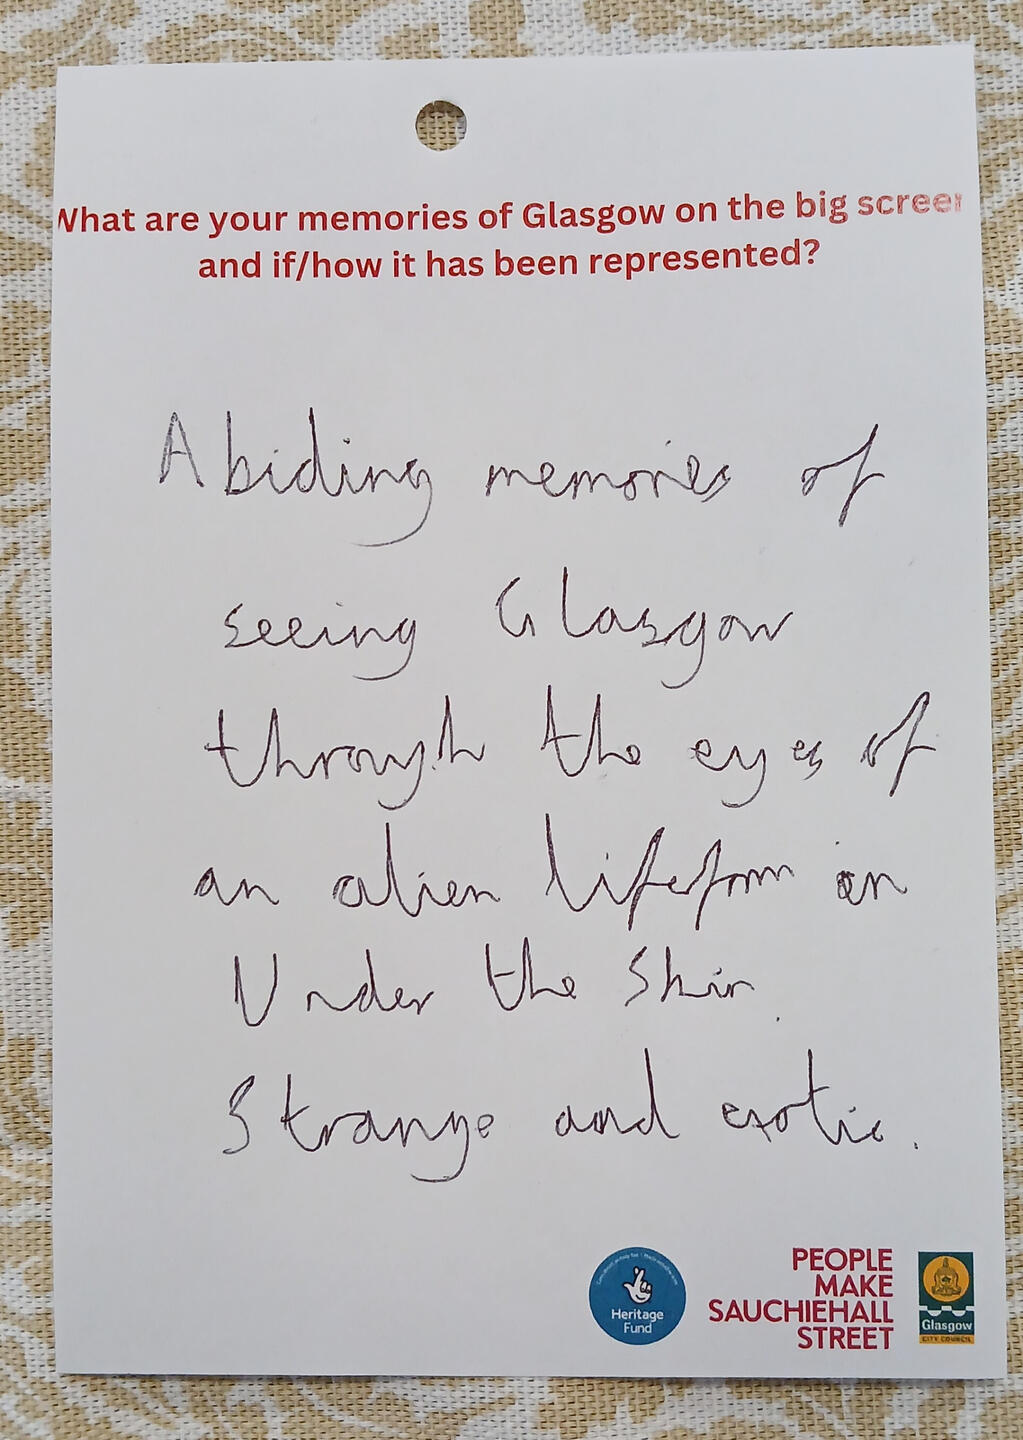 What are your memories of Glasgow on the big screen
and if/how it has been represented?
Abiding memories of
seeing Glasgow
through the eyes of
an alien lifeform in
Under the Skin.
Strange and exotic.
Heritage
Fund
PEOPLE
MAKE
SAUCHIEHALL
STREET
Glasgow
CITY COUNCIL